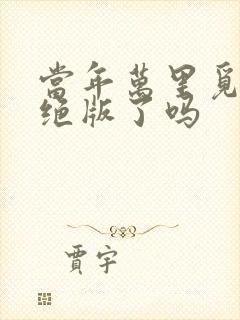 當年萬里覓
绝版了吗
賈宇